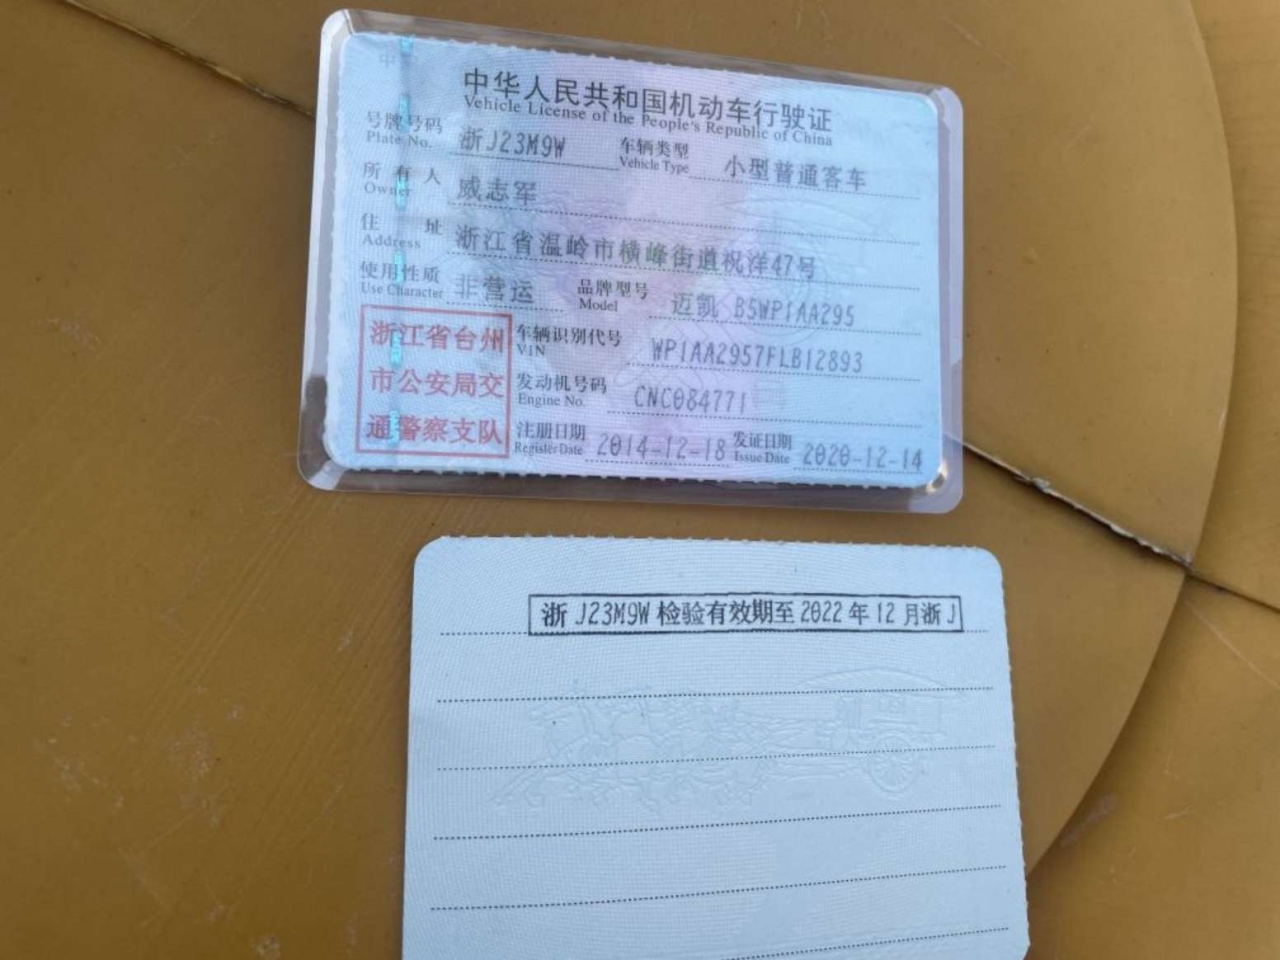 中华人民共和国机动车行驶证
Vehicle License of the People's Republic of China
号牌号码 浙J23M9W 车辆类型 小型普通客车
Plate No. Vehicle Type
所有人 戚志军
Owner
住址 浙江省温岭市横峰街道祝洋47号
Address
使用性质 非营运 品牌型号 迈凯 BSWP1AA295
Use Character Model
浙江省台州
市公安局交
通警察支队
车辆识别代号 WP1AA2957FLB12893
VIN
发动机号码 CNC084771
Engine No.
注册日期 2014-12-18 发证日期 2020-12-14
Register Date Issue Date
浙J23M9W检验有效期至2022年12月浙J